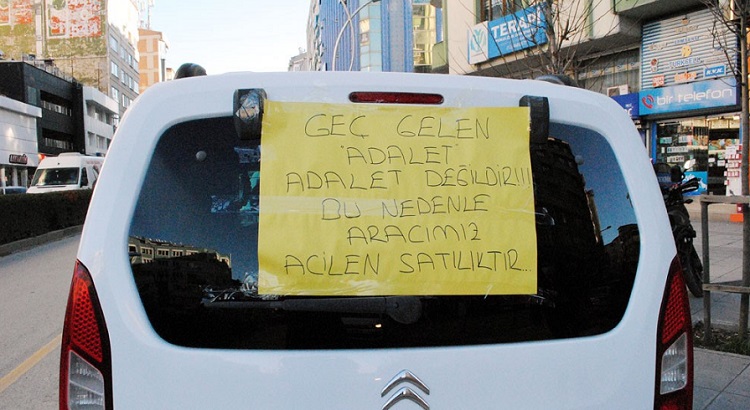 GEÇ GELEN
"ADALET"
ADALET DEĞİLDİR!!!
BU NEDENLE
ARACIMIZ
ACİLEN SATILIKTIR...
TERAPİ
bir telefon